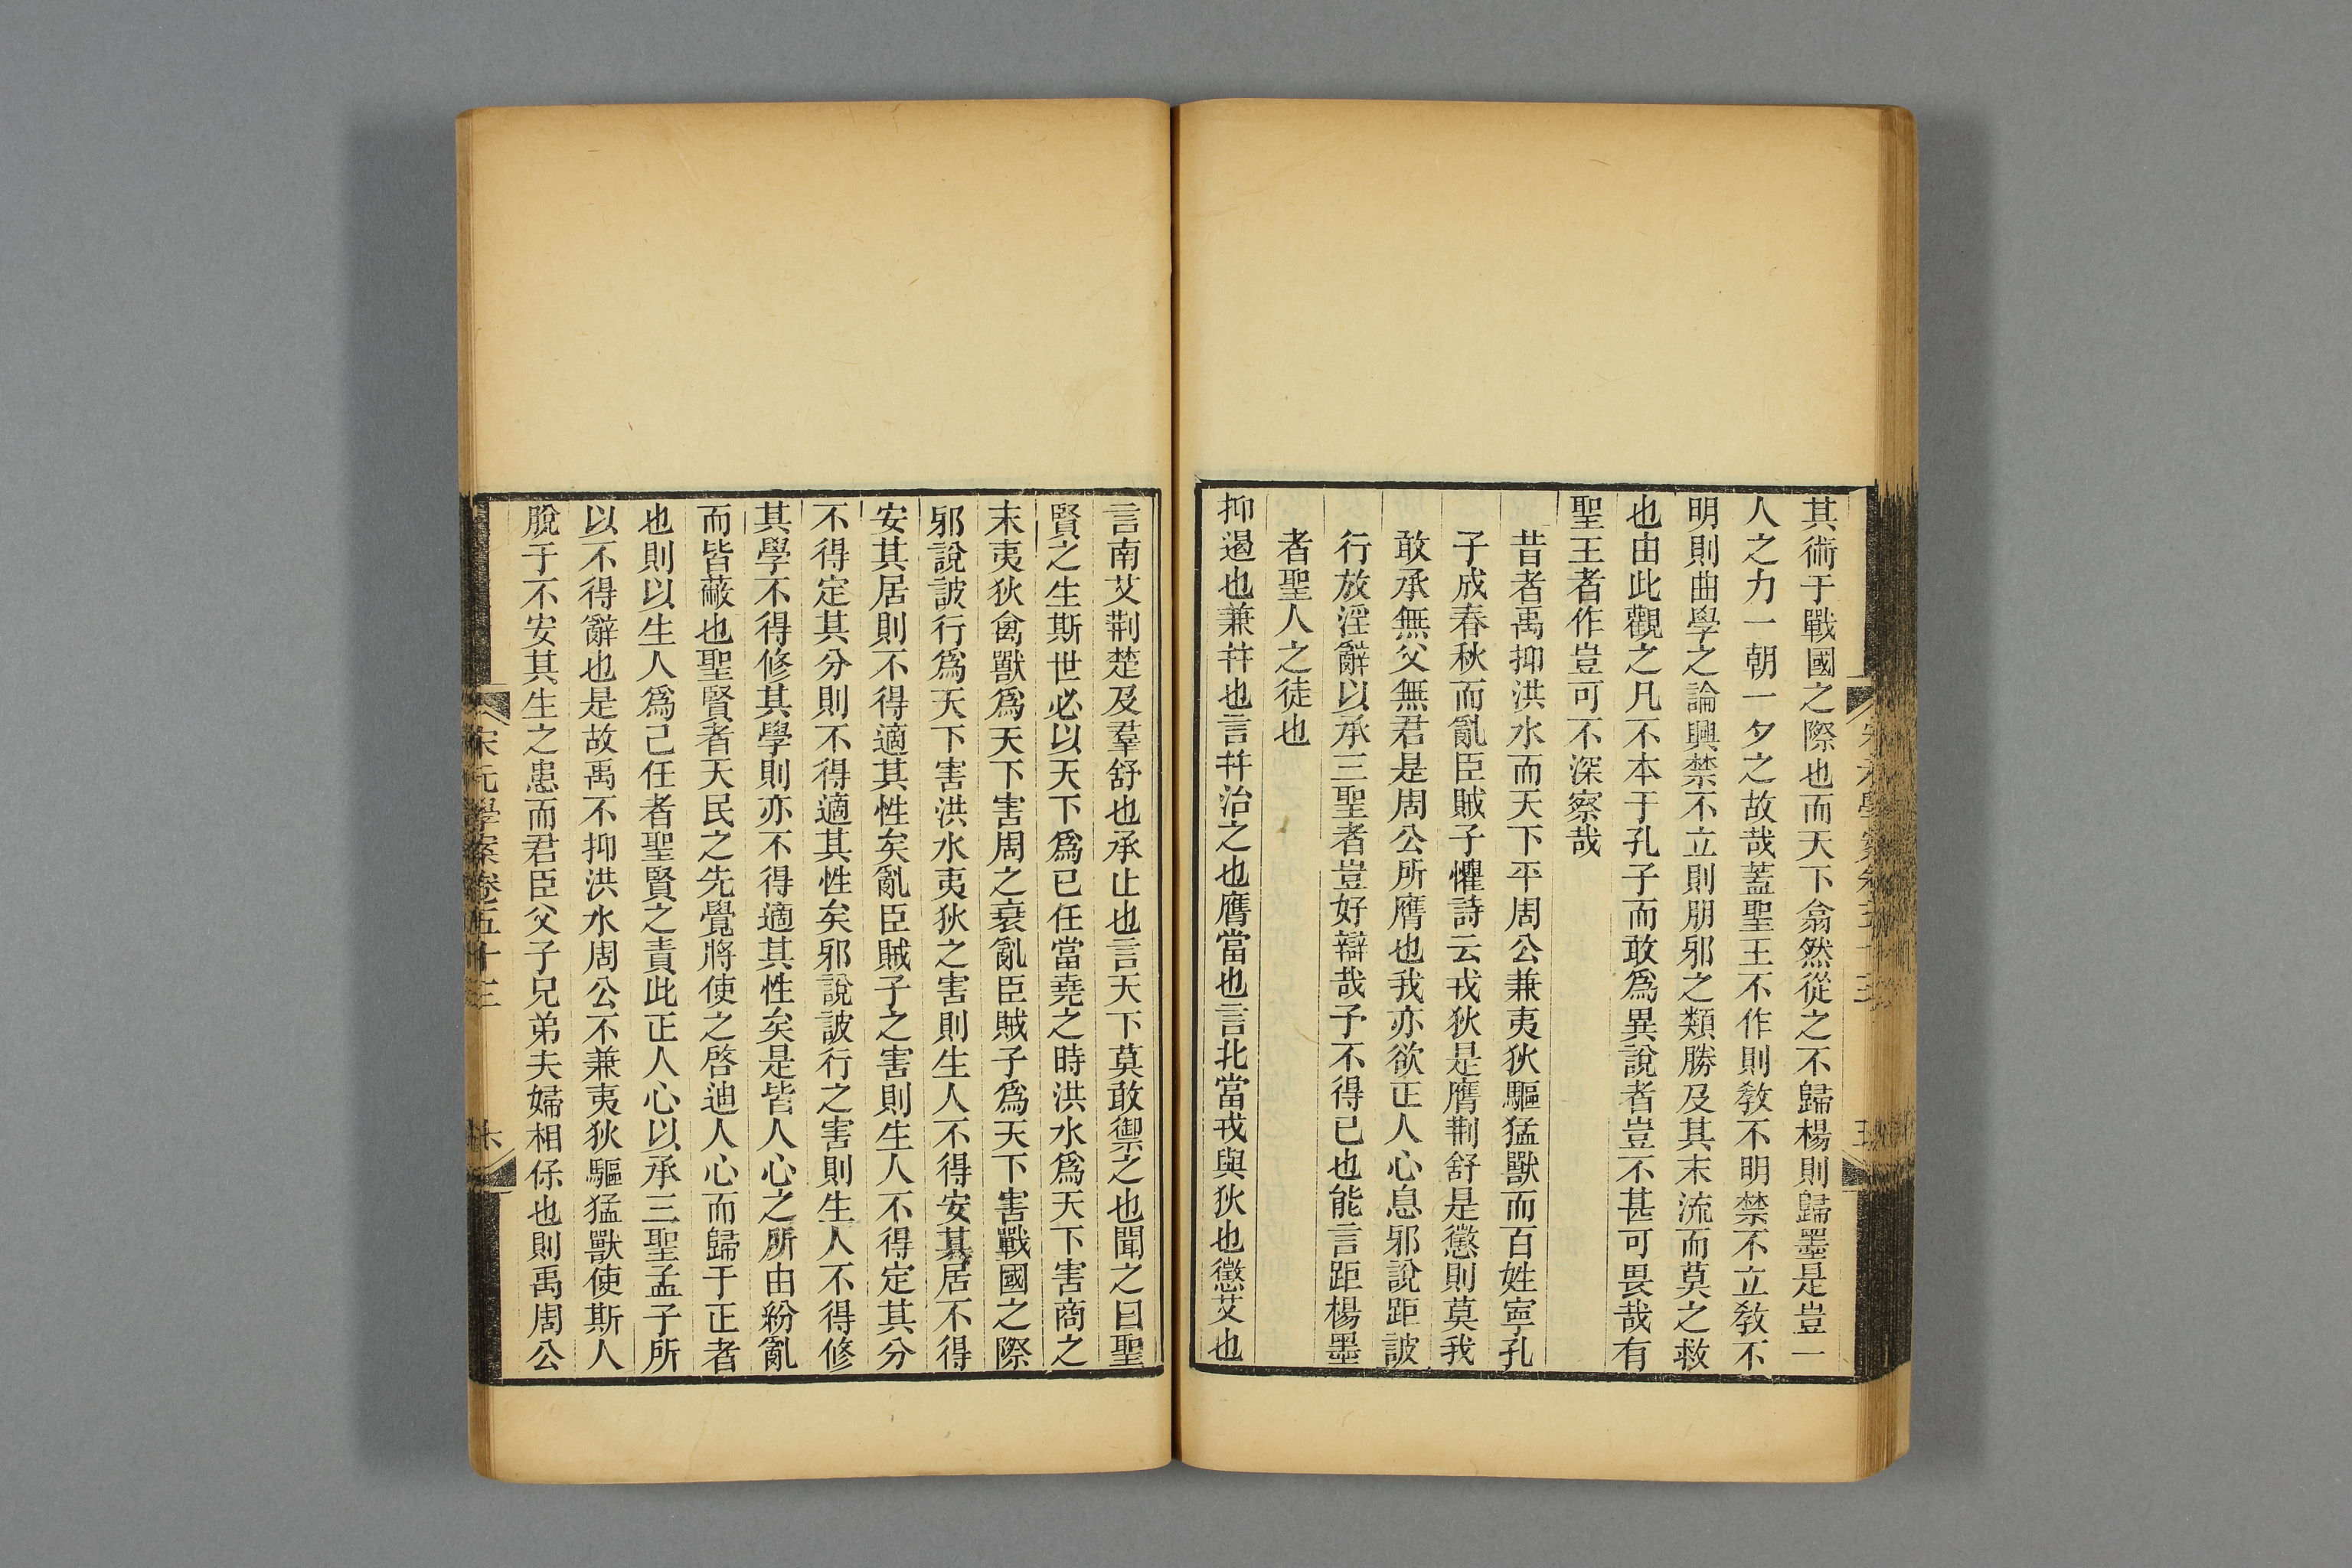 其術于戰國之際也而天下翕然從之不歸楊則歸墨是豈一
人之力一朝一夕之故哉蓋聖王不作則敎不明禁不立敎不
明則曲學之論興禁不立則朋邪之類勝及其末流而莫之救
也由此觀之凡不本于孔子而敢爲異說者豈不甚可畏哉有
聖王者作豈可不深察哉
昔者禹抑洪水而天下平周公兼夷狄驅猛獸而百姓寧孔
子成春秋而亂臣賊子懼詩云戎狄是膺荆舒是懲則莫我
敢承無父無君是周公所膺也我亦欲正人心息邪說距詖
行放淫辭以承三聖者豈好辯哉予不得已也能言距楊墨
者聖人之徒也
抑遏也兼幷也言幷治之也膺當也言北當戎與狄也懲艾也
言南艾荆楚及羣舒也承止也言天下莫敢禦之也聞之曰聖
賢之生斯世必以天下爲己任當堯之時洪水爲天下害商之
末夷狄禽獸爲天下害周之衰亂臣賊子爲天下害戰國之際
邪說詖行爲天下害洪水夷狄之害則生人不得安其居不得
安其居則不得適其性矣亂臣賊子之害則生人不得定其分
不得定其分則不得適其性矣邪說詖行之害則生人不得修
其學不得修其學則亦不得適其性矣是皆人心之所由紛亂
而皆蔽也聖賢者天民之先覺將使之啓迪人心而歸于正者
也則以生人爲己任者聖賢之責此正人心以承三聖孟子所
以不得辭也是故禹不抑洪水周公不兼夷狄驅猛獸使斯人
脫于不安其生之患而君臣父子兄弟夫婦相保也則禹周公
宋元學案卷五十三
六